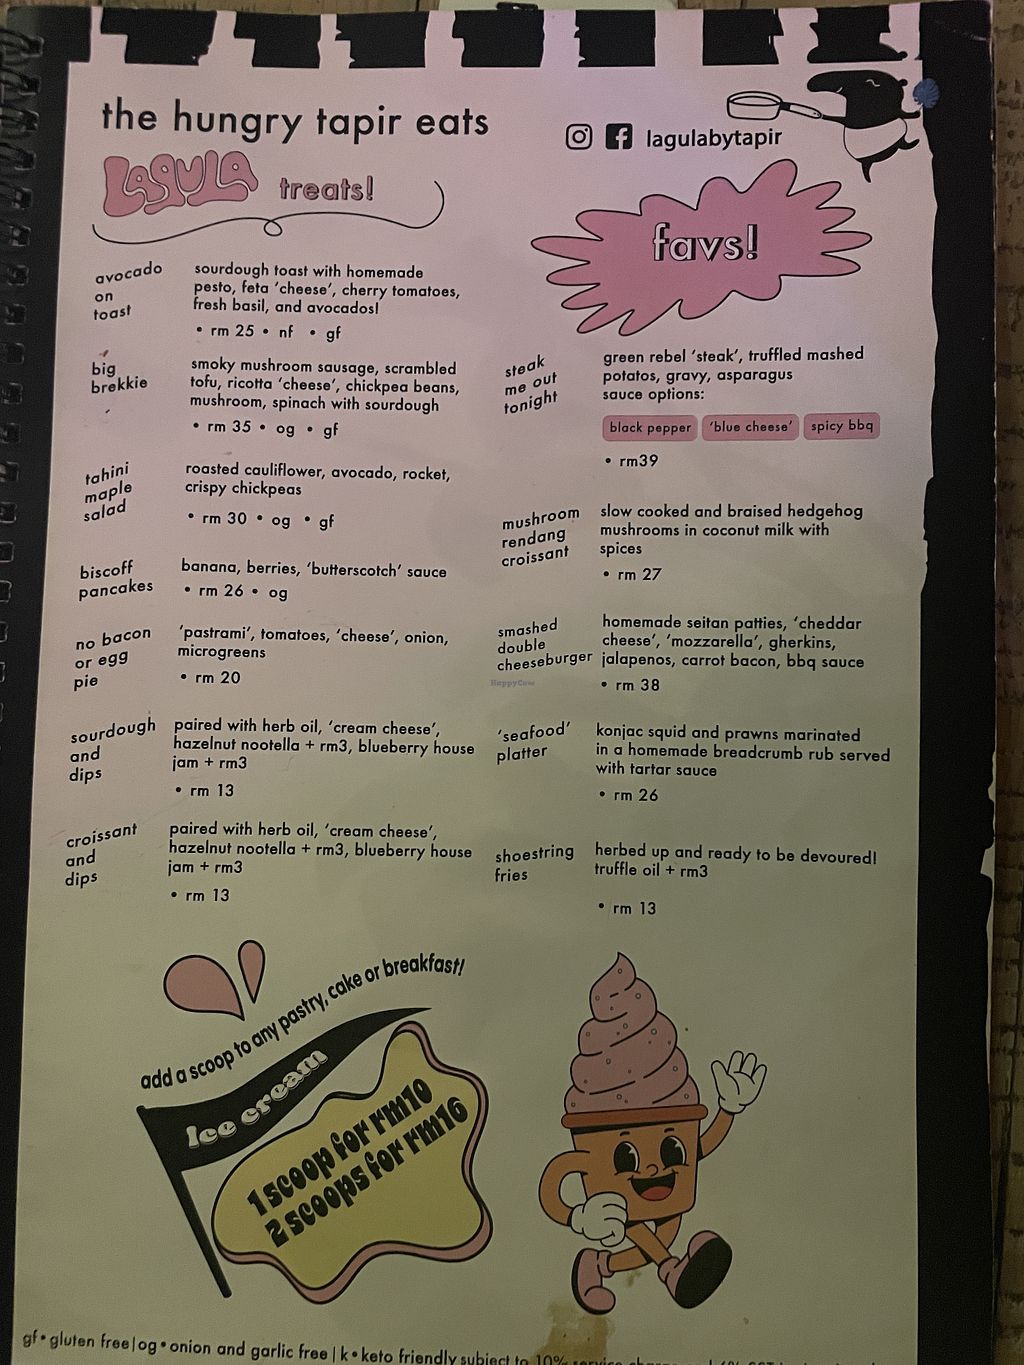 the hungry tapir eats
lagulabytapir
LAGULA treats!
avocado
on
toast
sourdough toast with homemade
pesto, feta 'cheese', cherry tomatoes,
fresh basil, and avocados!
• rm 25 • nf • gf
big
brekkie
smoky mushroom sausage, scrambled
tofu, ricotta 'cheese', chickpea beans,
mushroom, spinach with sourdough
• rm 35 • og • gf
tahini
maple
salad
roasted cauliflower, avocado, rocket,
crispy chickpeas
• rm 30 • og • gf
biscoff
pancakes
banana, berries, 'butterscotch' sauce
• rm 26 • og
no bacon
or egg
pie
'pastrami', tomatoes, 'cheese', onion,
microgreens
• rm 20
sourdough
and
dips
paired with herb oil, 'cream cheese',
hazelnut nootella + rm3, blueberry house
jam + rm3
• rm 13
croissant
and
dips
paired with herb oil, 'cream cheese',
hazelnut nootella + rm3, blueberry house
jam + rm3
• rm 13
favs!
steak
me out
tonight
green rebel 'steak', truffled mashed
potatos, gravy, asparagus
sauce options:
black pepper 'blue cheese' spicy bbq
• rm39
mushroom
rendang
croissant
slow cooked and braised hedgehog
mushrooms in coconut milk with
spices
• rm 27
smashed
double
cheeseburger
homemade seitan patties, 'cheddar
cheese', 'mozzarella', gherkins,
jalapenos, carrot bacon, bbq sauce
• rm 38
HappyCow
'seafood'
platter
konjac squid and prawns marinated
in a homemade breadcrumb rub served
with tartar sauce
• rm 26
shoestring
fries
herbed up and ready to be devoured!
truffle oil + rm3
• rm 13
add a scoop to any pastry, cake or breakfast!
Ice cream
1 scoop for rm10
2 scoops for rm16
gf • gluten free | og • onion and garlic free | k • keto friendly subject to 10% service